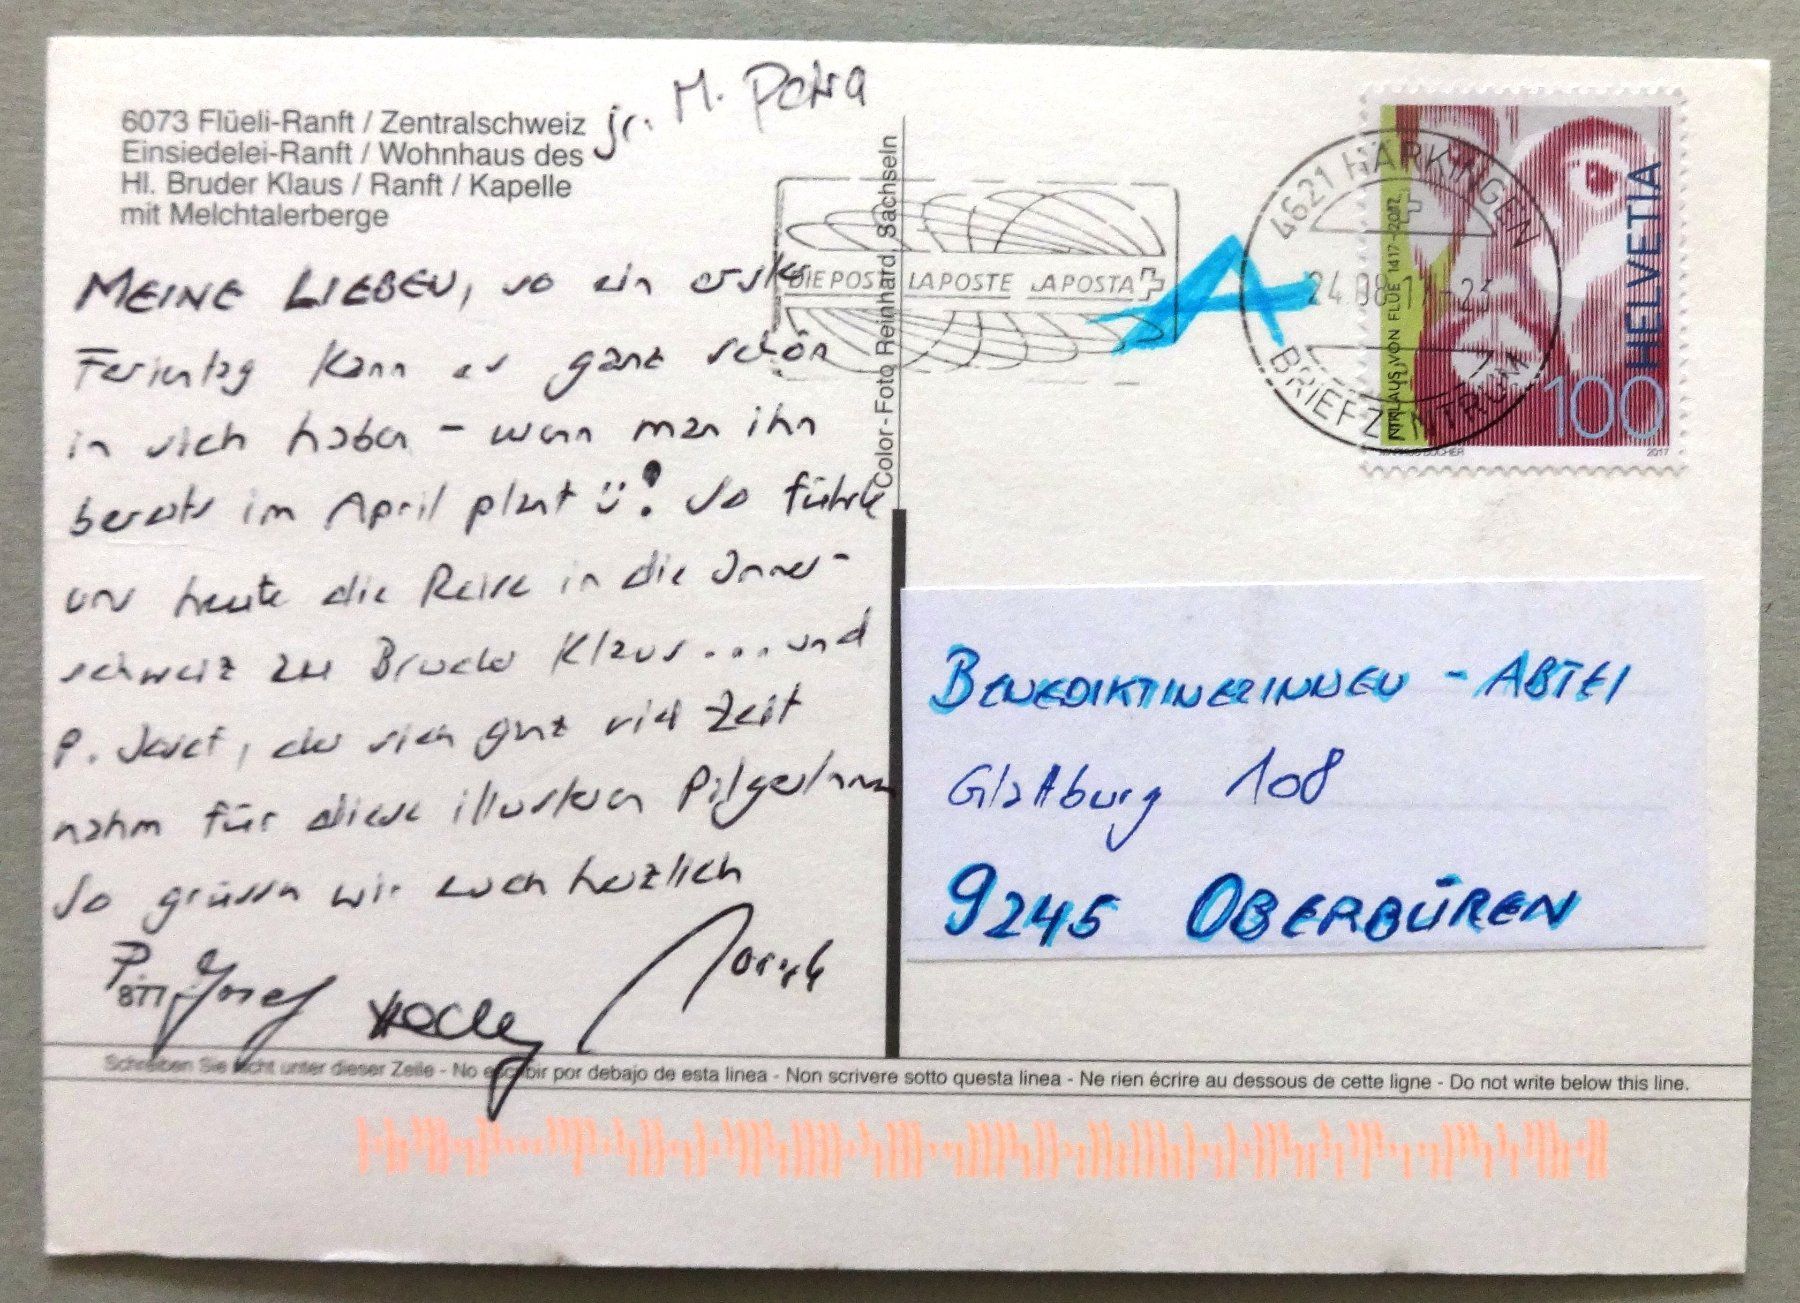 jr. M. Petra
6073 Flüeli-Ranft / Zentralschweiz
Einsiedelei-Ranft / Wohnhaus des
Hl. Bruder Klaus / Ranft / Kapelle
mit Melchtalerberge
MEINE LIEBEN, so ein erster
Ferientag kann es ganz schön
in sich haben - wenn man ihn
bereits im April plant ü! So führte
uns heute die Reise in die Inner-
schweiz zu Bruder Klaus... und
P. Josef, der sich ganz viel Zeit
nahm für diese illustren
So grüssen wir euch herzlich
P. Josef
Color-Foto Reinhard, Sachseln
DIE POST LA POSTE LA POSTA
A
4621 HÄRKINGEN
24.08.17-23
BRIEFZENTRUM
NIKLAUS VON FLÜE 1417-2017
HELVETIA
100
2017
BENEDIKTINERINNEN - ABTEI
Glattburg 108
9245 OBERBÜREN
Schreiben Sie nicht unter dieser Zeile - No escribir por debajo de esta linea - Non scrivere sotto questa linea - Ne rien écrire au dessous de cette ligne - Do not write below this line.